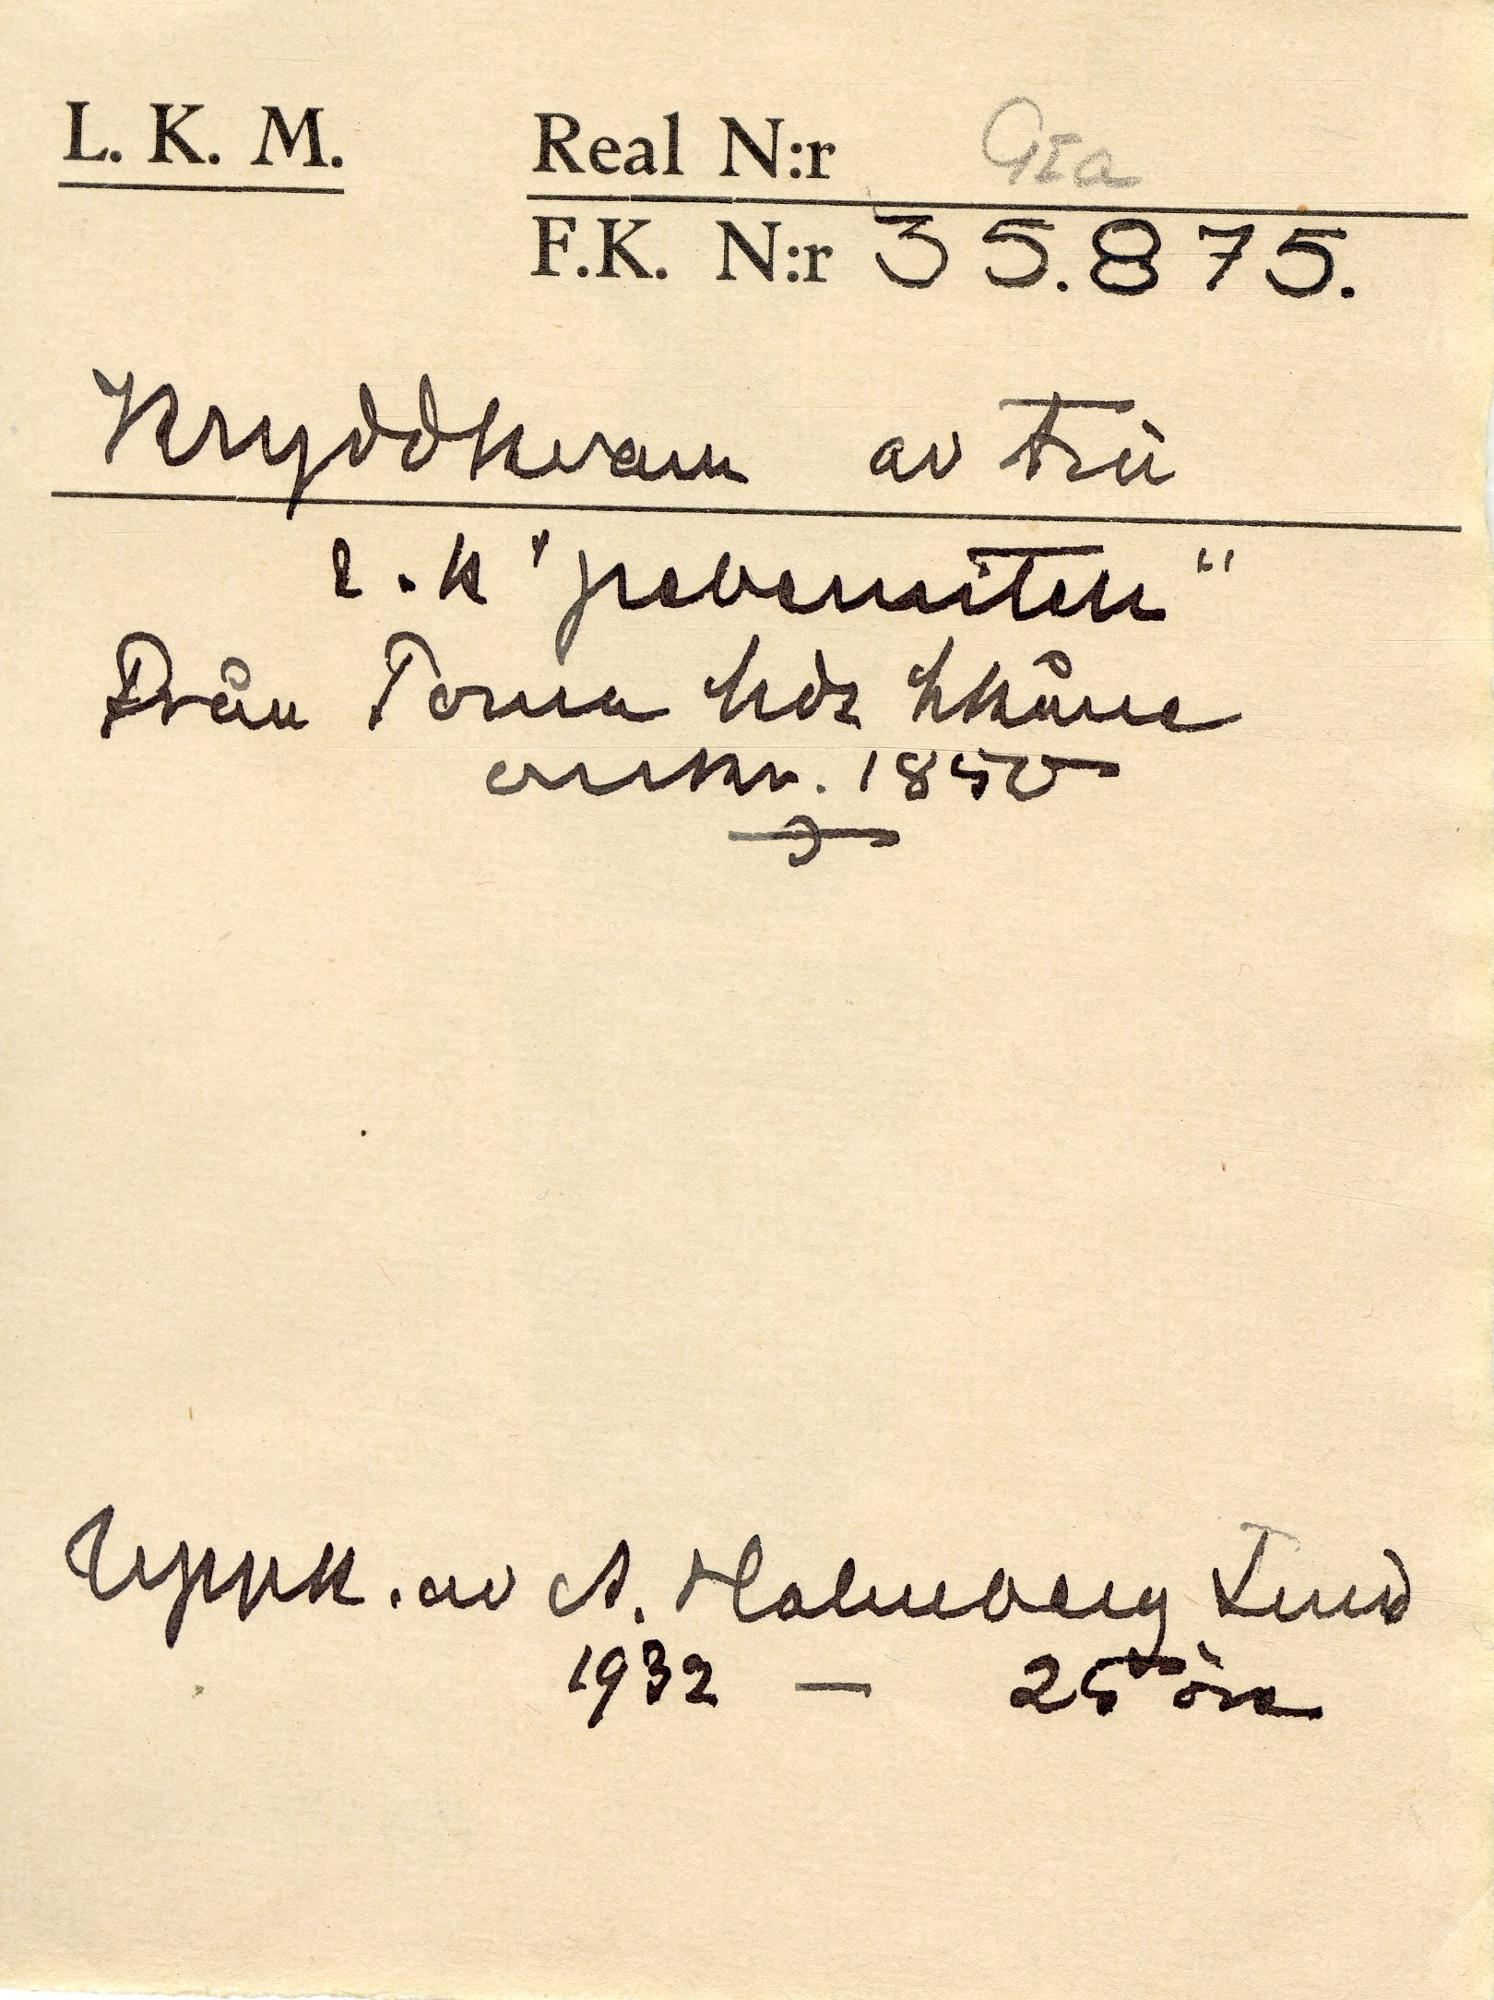 L. K. M.
Real N:r GIa
F.K. N:r 35.875.
Kryddkvarn av trä
s.k "pebermiten"
Från Torna hds Skåne
omkr. 1850
Uppk. av A. Holmberg Lund
1932 — 25 öre